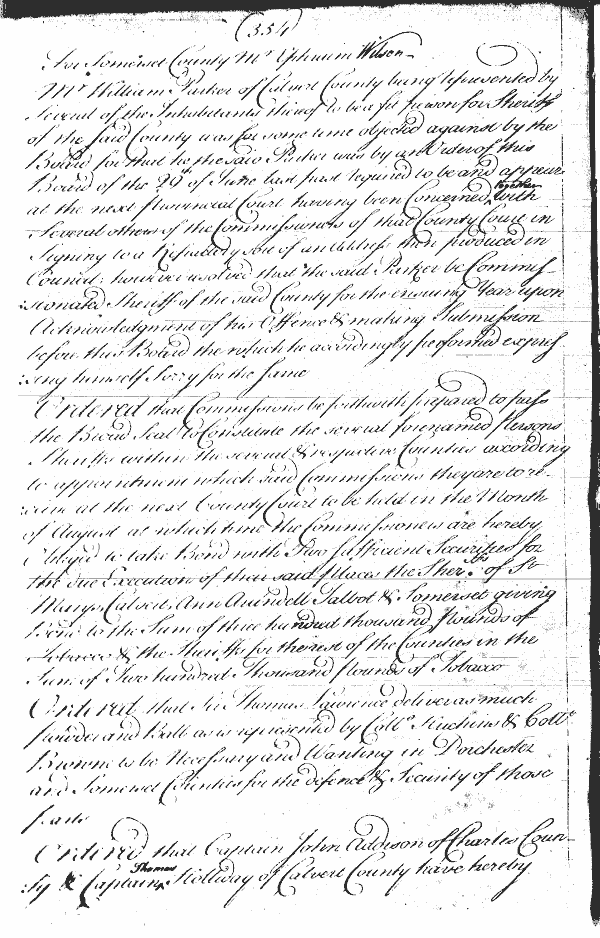 (354)
For Somerset County Mr Ephraim Wilson
Mr William Parker of Calvert County being represented by
several of the Inhabitants thereof to be a fit person for Sheriff
of the said County was for some time objected against by the
Board for that he the said Parker was by an Order of this
Board of the 29th of June last past required to be and appear
at the next Provincial Court having been Concerned together with
several others of the Commissioners of that County Court in
signing to a Refractory sort of an address then produced in
Council; however resolved that the said Parker be Commis-
:sionated Sheriff of the said County for the ensuing Year upon
Acknowledgment of his Offence & making Submission
before this Board the which he accordingly performed express
:sing himself Sorry for the same
Ordered that Commissions be forthwith prepared to pass
the Broad Seal to Constitute the several forenamed persons
Sheriffs within the several & respective Counties according
to appointment which said Commissions they are to re-
:ceive at the next County Court to be held in the Month
of August at which time the Commissioners are hereby
Obleiged to take Bond with Two sufficient Securities for
the due Execution of their said places the Sheriffs of St
Marys Calvert, Ann Arundell Talbot & Somerset giving
Bond to the Sum of three hundred thousand pounds of
Tobacco & the Sheriffs for the rest of the Counties in the
Sum of Two hundred Thousand pounds of Tobacco
Ordered that Sir Thomas Lawrence deliver as much
powder and Ball as is represented by Collo Hutchins & Collo
Browne to be Necessary and Wanting in Dorchester
and Somerset Counties for the defence & Security of those
parts
Ordered that Captain John Addison of Charles Coun-
:ty & Captain Thomas Holliday of Calvert County have hereby